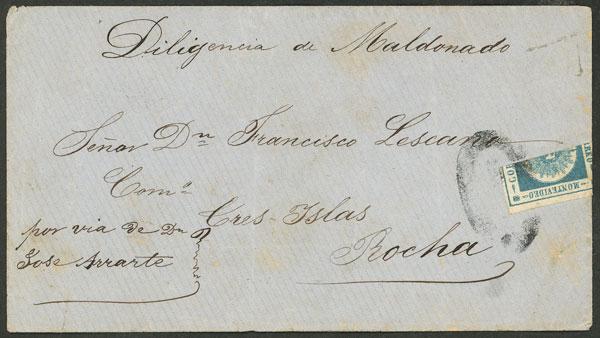 Diligencia de Maldonado
Señor Dn Francisco Lescano
Comº
Tres-Islas
Rocha
por via de Dn
José Arrarte
MONTEVIDEO